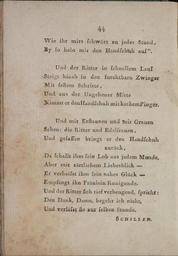 44
Wie ihr mirs schwört zu jeder Stund,
Ey so hebt mir den Handschuh auf".
Und der Ritter in schnellem Lauf
Steigt hinab in den furchtbarn Zwinger
Mit festem Schritte,
Und aus der Ungeheuer Mitte
Nimmt er den Handschuh mit keckem Finger.
Und mit Erstaunen und mit Grauen
Sehen die Ritter und Edelfrauen,
Und gelassen bringt er den Handschuh
zurück,
Da schallt ihm sein Lob aus jedem Munde,
Aber mit zärtlichem Liebesblick —
Er verheißt ihm sein nahes Glück —
Empfängt ihn Fräulein Kunigunde.
Und der Ritter sich tief verbeugend, spricht:
Den Dank, Dame, begehr ich nicht,
Und verläßt sie zur selben Stunde.
SCHILLER.